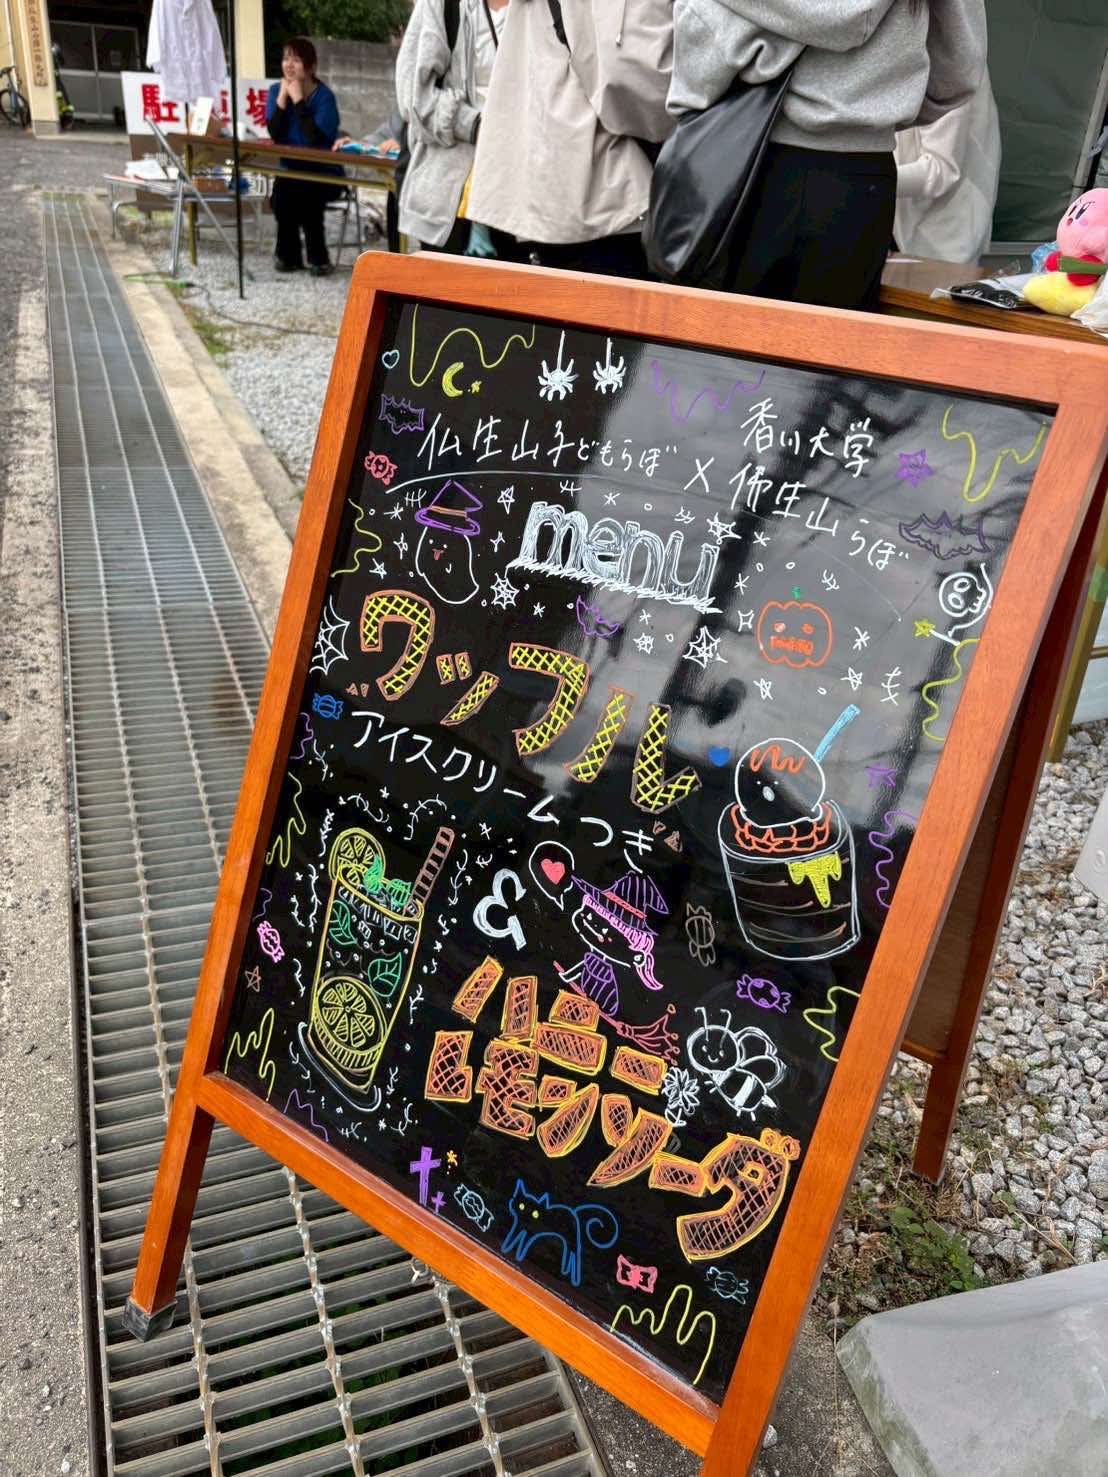 駐車場
仏生山子どもらぼ
×
香川大学
佛生山らぼ
menu
ワッフル
アイスクリームつき
&
ハニー
レモンソーダ